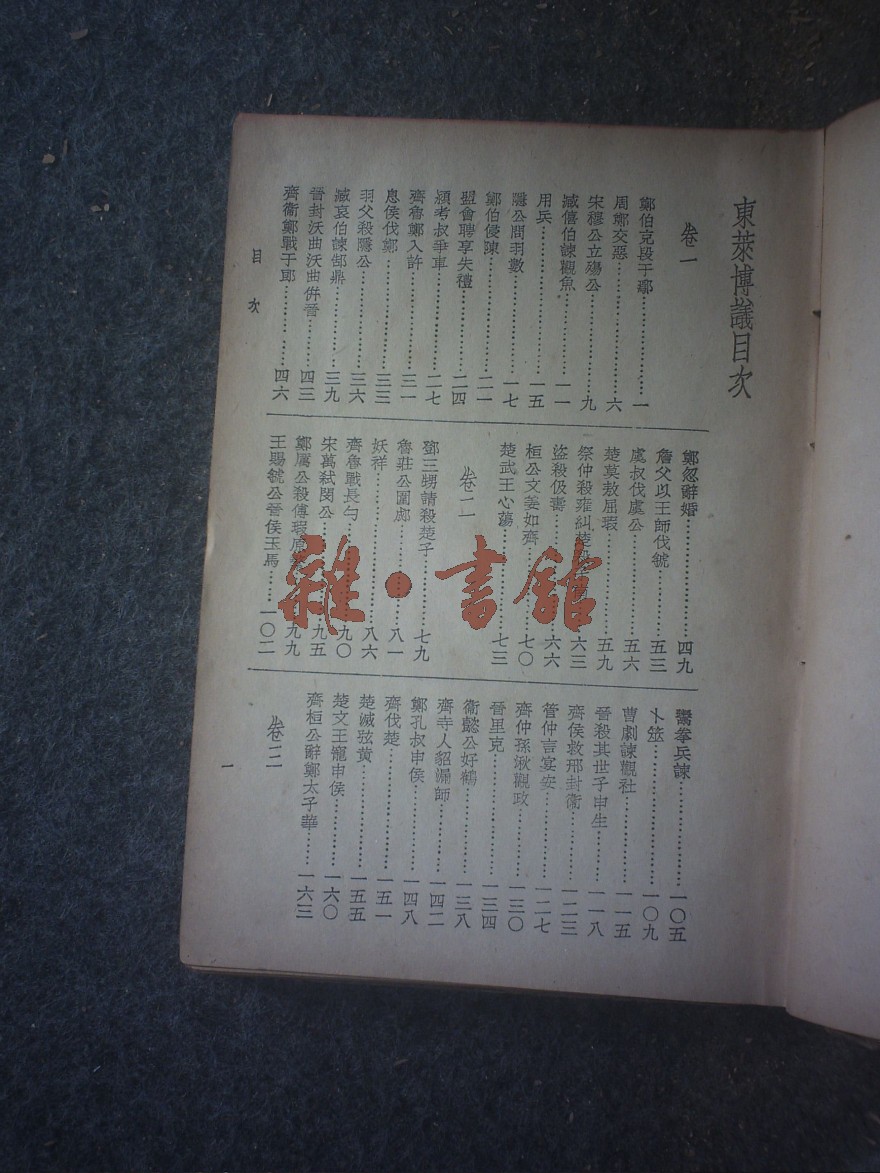 東萊博議目次
卷一
鄭伯克段于鄢……一
周鄭交惡……六
宋穆公立殤公……九
臧僖伯諫觀魚……一一
用兵……一五
隱公問羽數……一七
鄭伯侵陳……二一
盟會聘享失禮……二四
潁考叔爭車……二七
齊魯鄭入許……三一
息侯伐鄭……三三
羽父殺隱公……三六
臧哀伯諫郜鼎……三九
晉封沃曲沃曲併晉……四三
齊衞鄭戰于郎……四六
鄭忽辭婚……四九
詹父以王師伐虢……五三
虞叔伐虞公……五六
楚莫敖屈瑕……五九
祭仲殺雍糾楚……六三
盜殺伋壽……六六
桓公文姜如齊……七〇
楚武王心蕩……七三
卷二
鄧三甥請殺楚子……七九
魯莊公圍郕……八一
妖祥……八六
齊魯戰長勺……九〇
宋萬弒閔公……九五
鄭厲公殺傅瑕原……九九
王賜虢公晉侯玉馬……一〇二
鬻拳兵諫……一〇五
卜筮……一〇九
曹劌諫觀社……一一五
晉殺其世子申生……一一八
齊侯救邢封衞……一二三
管仲言宴安……一二七
齊仲孫湫觀政……一三〇
晉里克……一三四
衞懿公好鶴……一三八
齊寺人貂漏師……一四二
鄭孔叔申侯……一四八
齊伐楚……一五一
楚滅弦黃……一五五
楚文王寵申侯……一六〇
齊桓公辭鄭太子華……一六三
卷三
目次
一
雜·書館